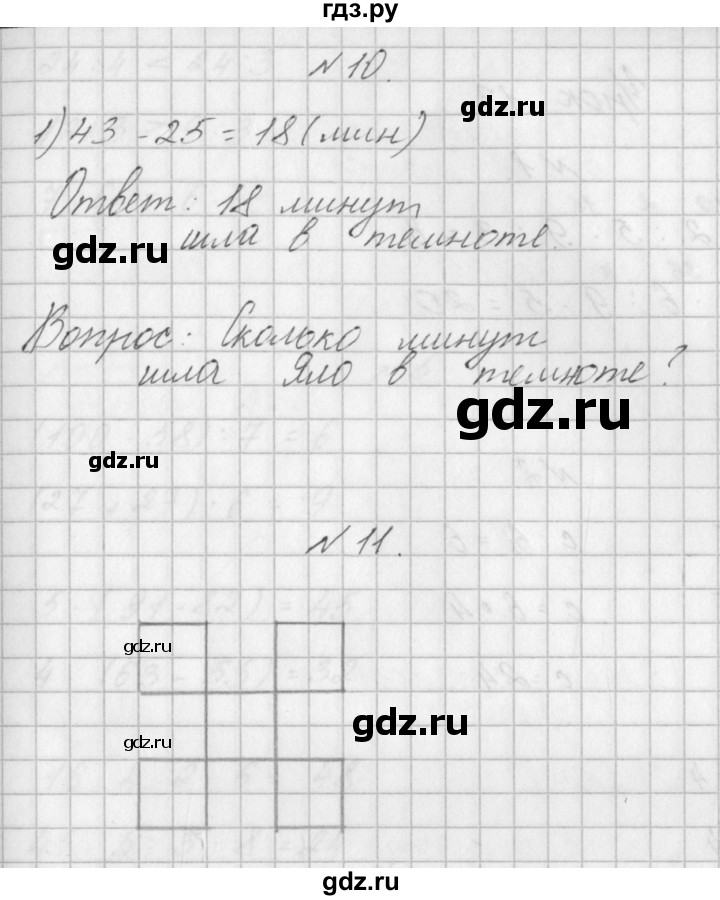 гдз.ру
N 10.
gdz.ru
1) 43 - 25 = 18 (мин)
Ответ: 18 минут
шла в темноте.
gdz.ru
Вопрос: Сколько минут
шла Яло в темноте?
gdz.ru
gdz.ru
N 11.
gdz.ru
gdz.ru
gdz.ru
gdz.ru